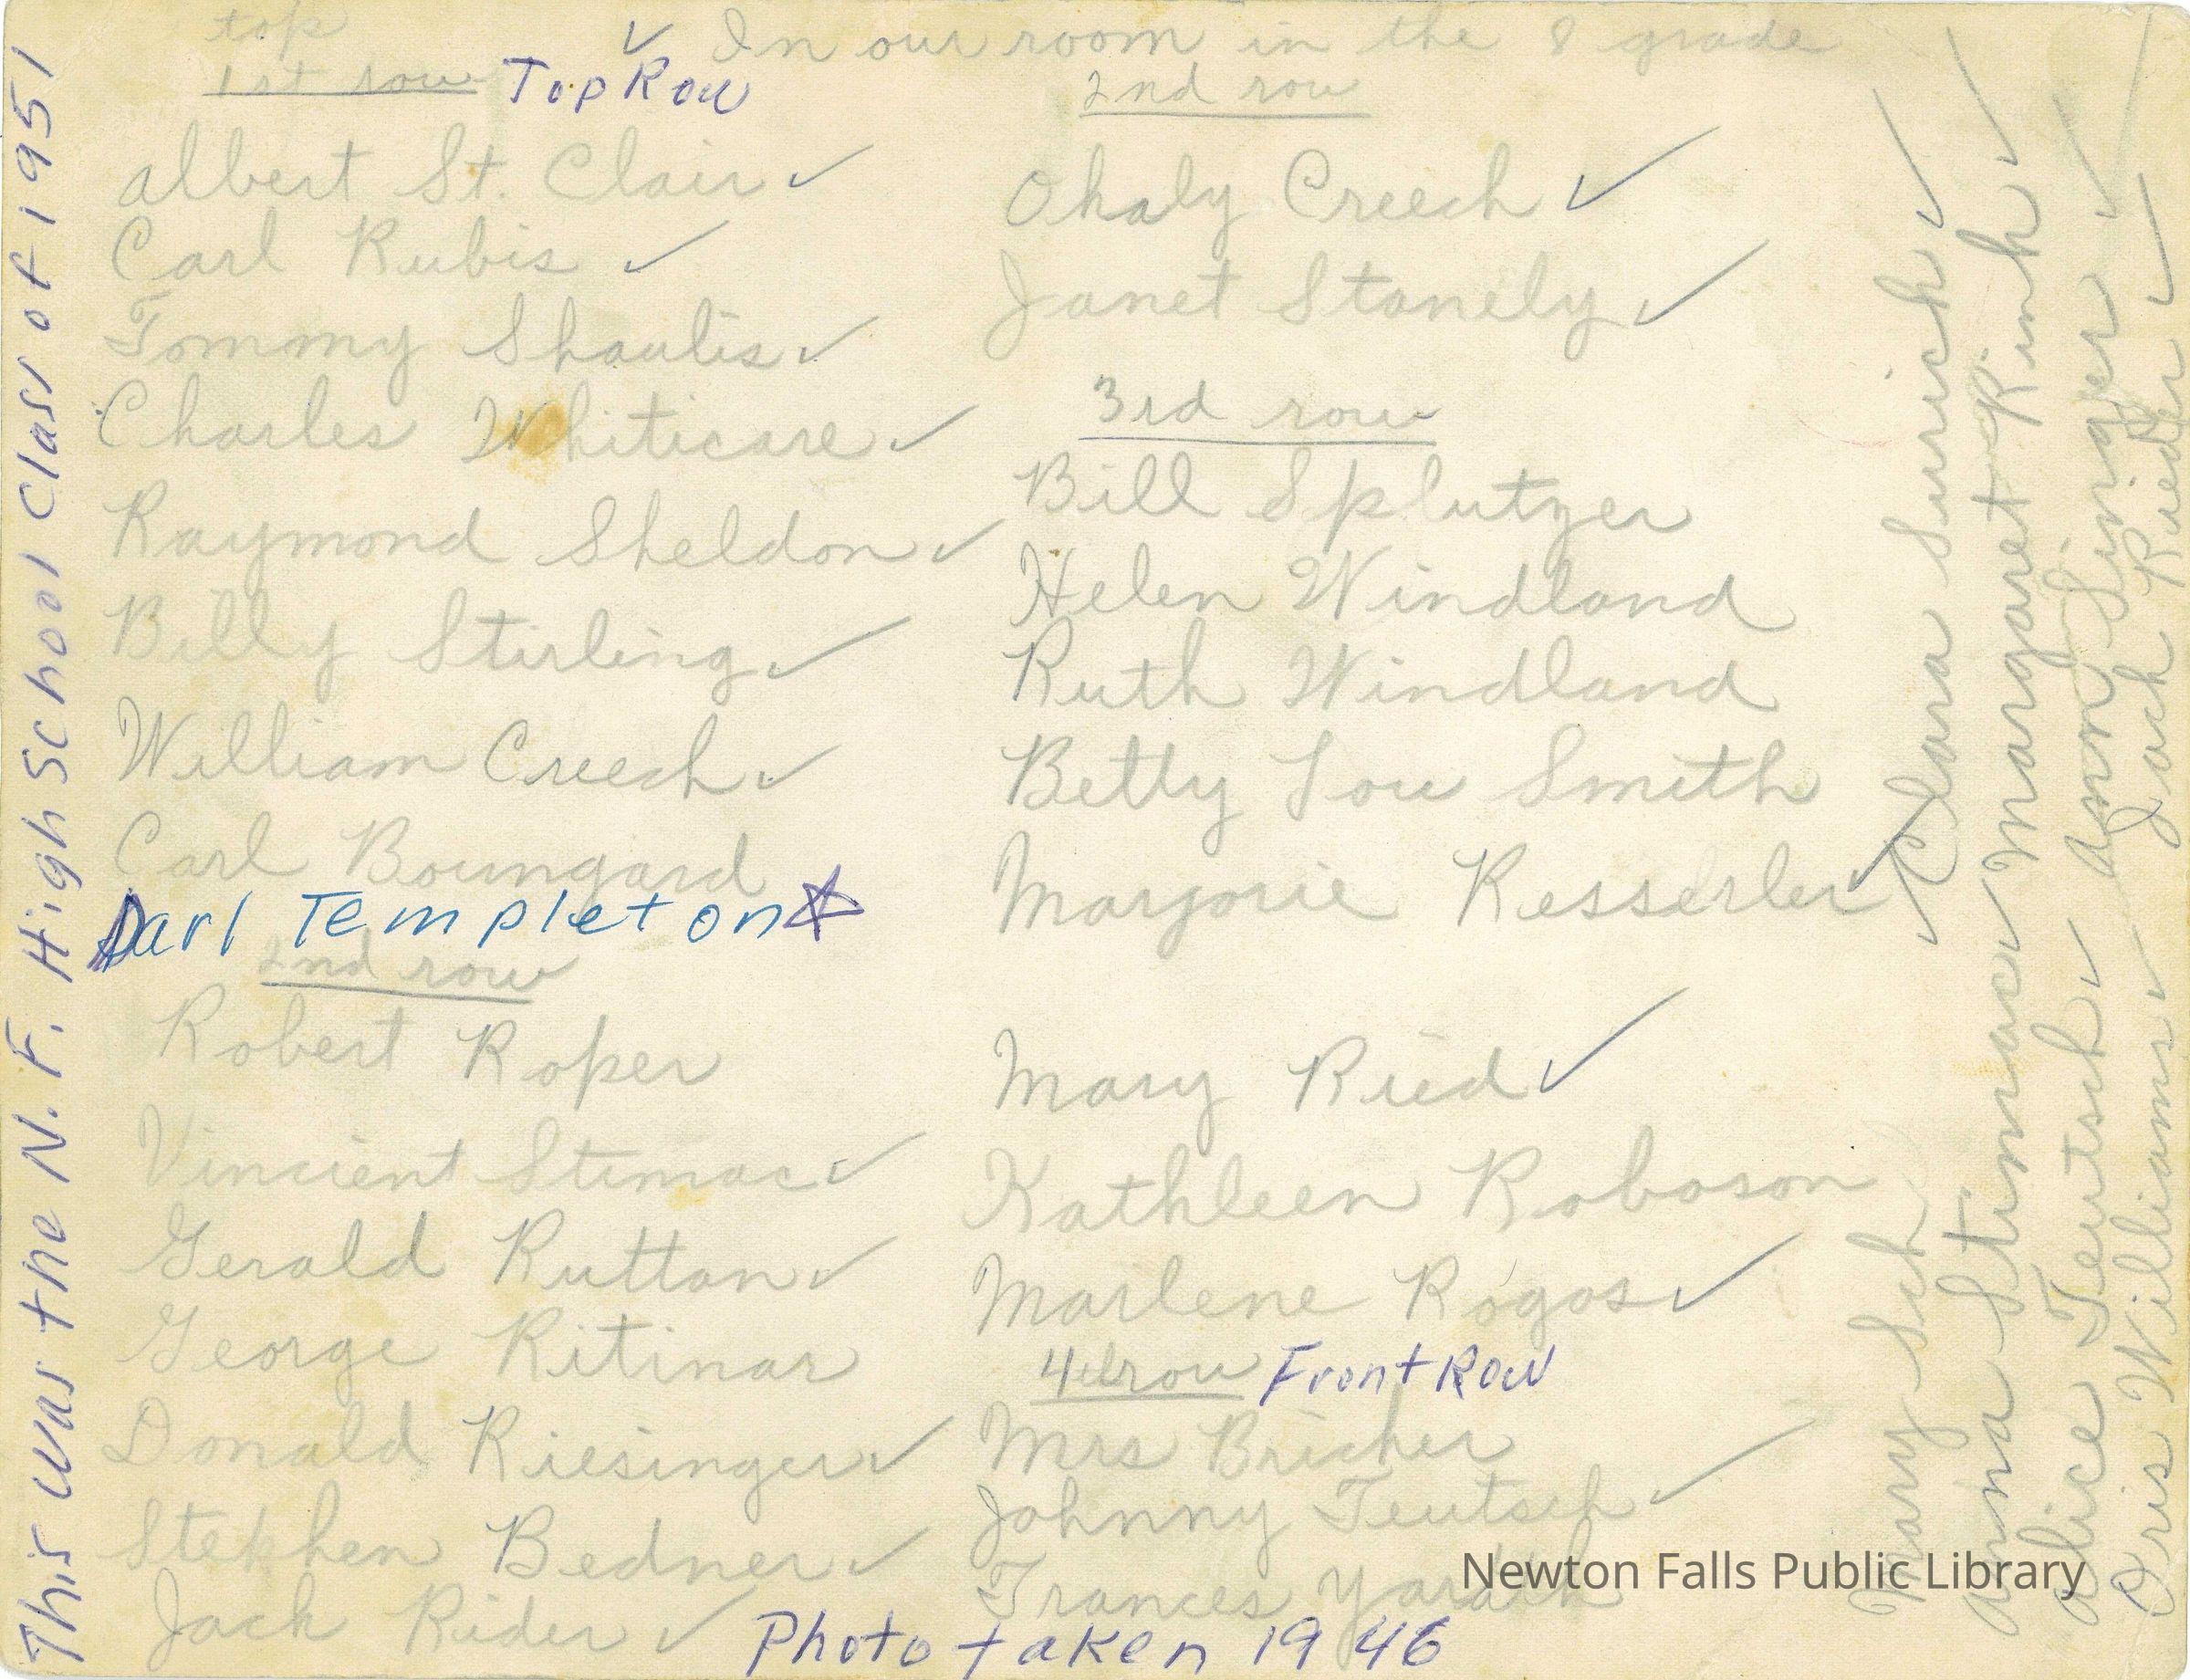 This was the N. F. High School Class of 1951
top
✓ In our room in the 8 grade
1st row Top Row
albert St. Clair ✓
Carl Rubis ✓
Tommy Shaulis ✓
Charles Whiticare ✓
Raymond Sheldon ✓
Billy Stirling ✓
William Creech ✓
Carl Boumgard
Darl Templeton ☆
2nd row
Robert Roper
Vincient Stimac ✓
Gerald Ruttan ✓
George Ritinar
Donald Riesinger ✓
Stephen Bedner ✓
Jack Rider ✓
2nd row
Ohaly Creech ✓
Janet Stanely ✓
3rd row
Bill Splutzer
Helen Windland
Ruth Windland
Betty Lou Smith
Marjorie Kesserler ✓
Mary Ried ✓
Kathleen Roboson
Marlene Rogos ✓
row Front Row
Mrs Bricker
Johnny Teutsch ✓
Frances
Photo taken 1946
Mary Sch ✓ Clara Surich ✓
anna Stimac ✓ Margaret Rink ✓
alice Teutsch ✓ ann Singer ✓
Oris Williams ✓ Jack Rieder ✓
Newton Falls Public Library